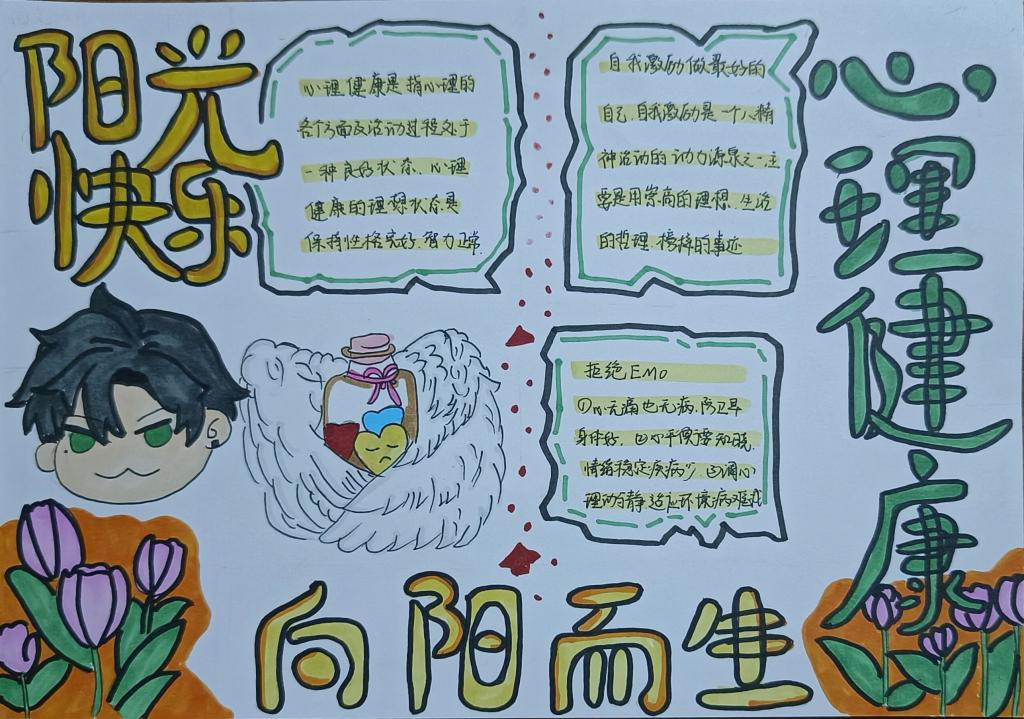 阳光
快乐
心理健康是指心理的
各个方面及活动过程处于
一种良好状态、心理
健康的理想状态是
保持性格完好、智力正常
自我激励做最好的
自己，自我激励是一个人精
神活动的动力源泉之一主
要是用崇高的理想、生活
的哲理、榜样的事迹
心理健康
拒绝EMO
①心无痛也无病，防卫早
身体好，②水平候要知晓，
情绪稳定疾病少，③调心
理动与静适应环境病难找
向阳而生